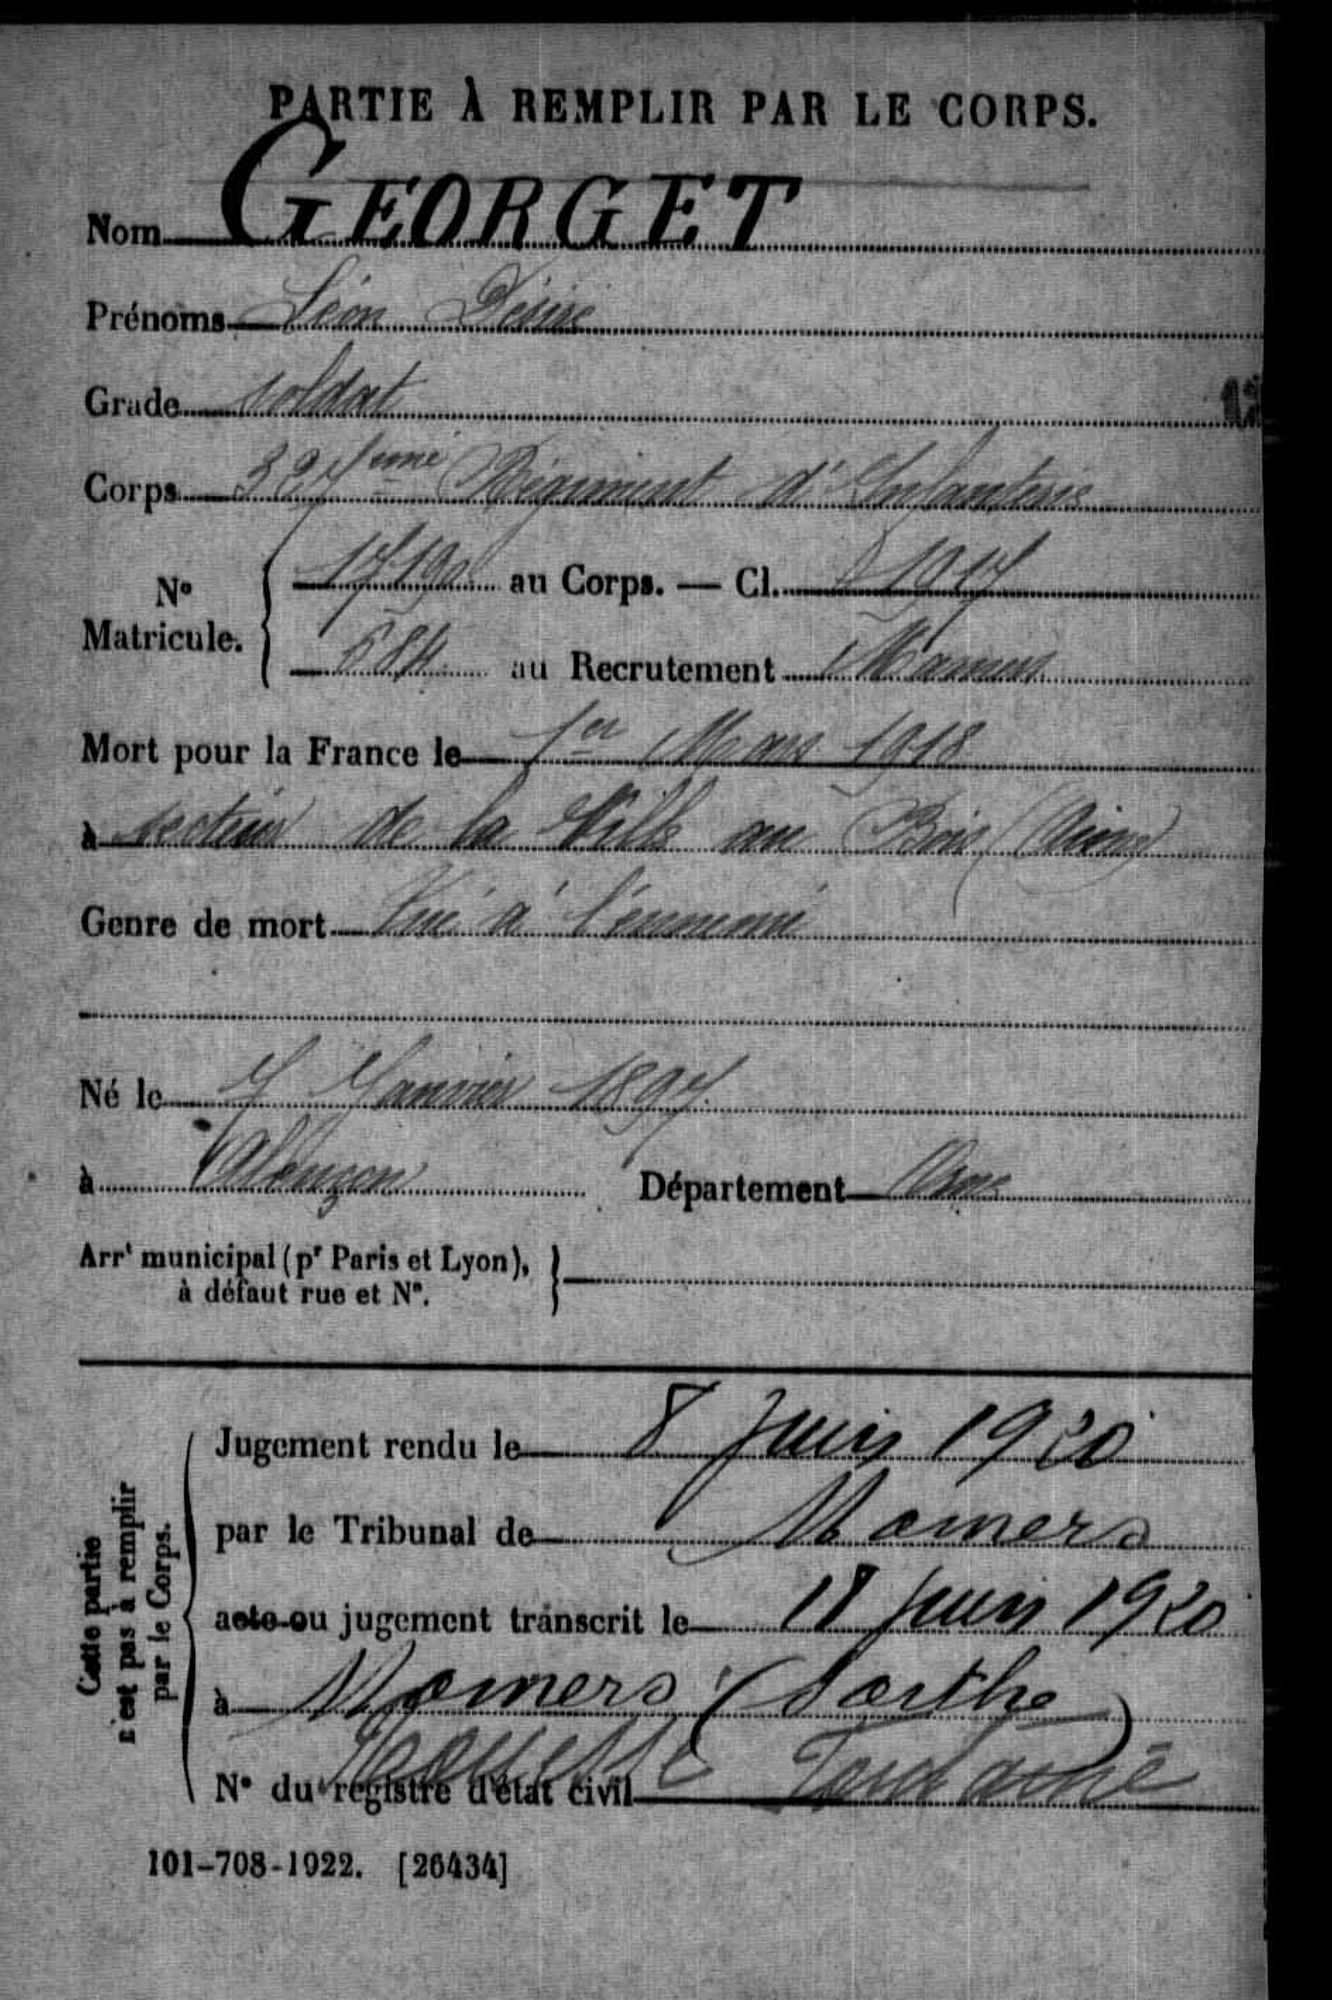 PARTIE À REMPLIR PAR LE CORPS.
Nom GEORGET
Prénoms Léon Désiré
Grade soldat
Corps 327ème Régiment d'Infanterie
No Matricule. 17190 au Corps. — Cl. 1917
684 au Recrutement Mamers
Mort pour la France le 1er Mars 1918
à secteur de la Ville au Bois (Aisne)
Genre de mort Tué à l'ennemi
Né le 7 Janvier 1897
à Alençon Département Orne
Arrt municipal (pr Paris et Lyon),
à défaut rue et No.
Cette partie
n'est pas à remplir
par le Corps.
Jugement rendu le 8 Juin 1920
par le Tribunal de Mamers
acte ou jugement transcrit le 18 Juin 1920
à Mamers (Sarthe)
No du registre d'état civil
101-708-1922. [26434]